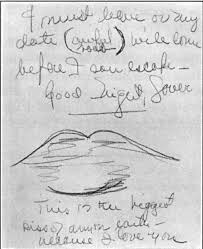 I must leave or my
date (awful
will come
before I can escape —
Good Night, Lover
This is the biggest
kiss on earth —
because I love you